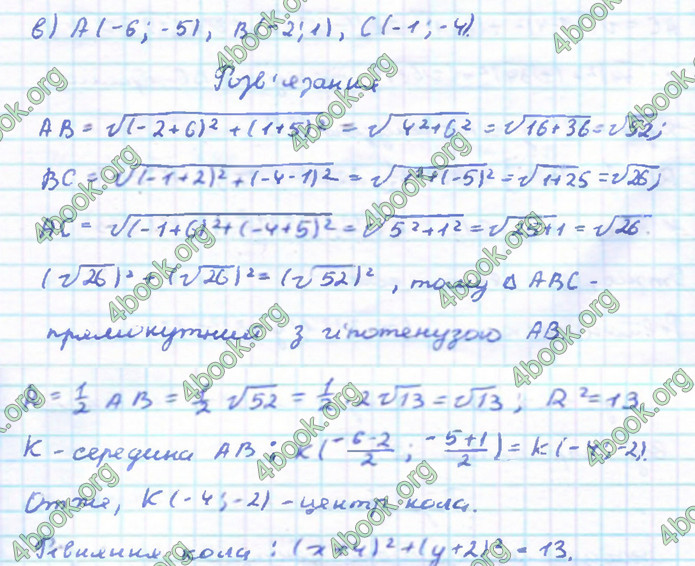 в) A(-6; -5), B(-2; 1), C(-1; -4).
Розв'язання
AB = √((-2+6)² + (1+5)²) = √(4²+6²) = √(16+36) = √52;
BC = √((-1+2)² + (-4-1)²) = √(1²+(-5)²) = √(1+25) = √26;
AC = √((-1+6)² + (-4+5)²) = √(5²+1²) = √(25+1) = √26.
(√26)² + (√26)² = (√52)², тому Δ ABC -
прямокутний з гіпотенузою AB
R = 1/2 AB = 1/2 √52 = 1/2 · 2√13 = √13; R² = 13.
K - середина AB: K((-6-2)/2; (-5+1)/2) = K(-4; -2).
Отже, K(-4; -2) - центр кола.
Рівняння кола: (x+4)² + (y+2)² = 13.
4book.org